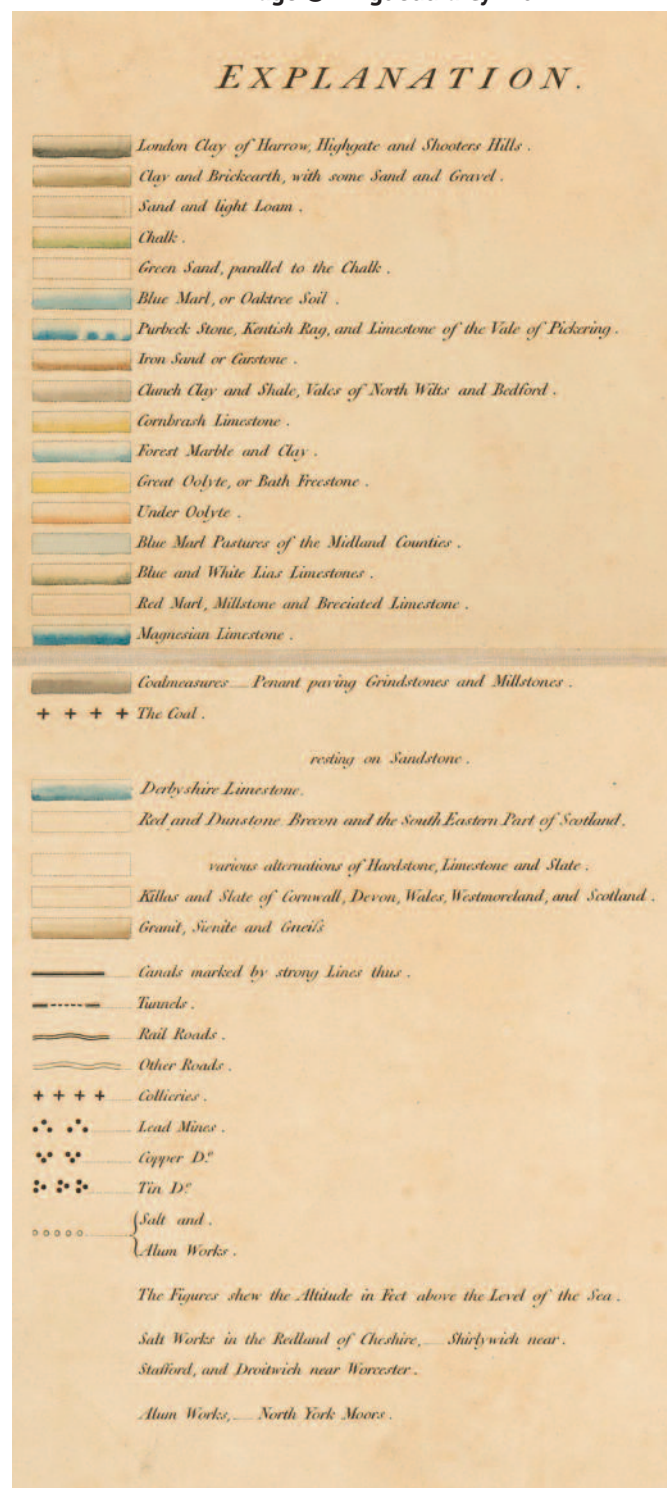 EXPLANATION.
London Clay of Harrow, Highgate and Shooters Hills.
Clay and Brickearth, with some Sand and Gravel.
Sand and light Loam.
Chalk.
Green Sand, parallel to the Chalk.
Blue Marl, or Oaktree Soil.
Purbeck Stone, Kentish Rag, and Limestone of the Vale of Pickering.
Iron Sand or Carstone.
Clunch Clay and Shale, Vales of North Wilts and Bedford.
Cornbrash Limestone.
Forest Marble and Clay.
Great Oolyte, or Bath Freestone.
Under Oolyte.
Blue Marl Pastures of the Midland Counties.
Blue and White Lias Limestones.
Red Marl, Millstone and Breciated Limestone.
Magnesian Limestone.
Coalmeasures__Penant paving Grindstones and Millstones.
The Coal.
resting on Sandstone.
Derbyshire Limestone.
Red and Dunstone Brecon and the South Eastern Part of Scotland.
various alternations of Hardstone, Limestone and Slate.
Killas and Slate of Cornwall, Devon, Wales, Westmoreland, and Scotland.
Granit, Sienite and Gneiſs
Canals marked by strong Lines thus.
Tunnels.
Rail Roads.
Other Roads.
Collieries.
Lead Mines.
Copper Dº
Tin Dº
Salt and.
Alum Works.
The Figures shew the Altitude in Feet above the Level of the Sea.
Salt Works in the Redland of Cheshire,__Shirlywich near.
Stafford, and Droitwich near Worcester.
Alum Works,__North York Moors.